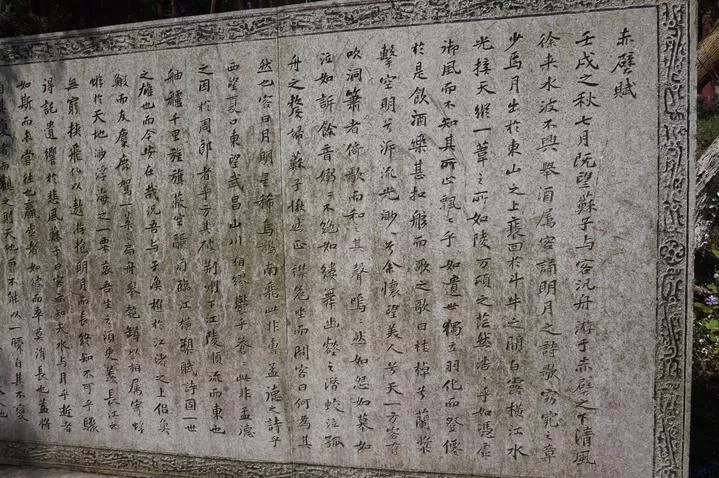 赤壁賦
壬戌之秋七月既望蘇子与客汎舟游于赤壁之下清風
徐来水波不興舉酒属客誦明月之詩歌窈窕之章
少焉月出於東山之上裵回於斗牛之間白露横江水
光接天縦一葦之所如陵万頃之茫然浩〻乎如馮虚
御風而不知其所止飄〻乎如遺世獨立羽化而登僊
於是飲酒樂甚扣舷而歌之歌曰桂棹兮蘭槳
擊空明兮泝流光渺〻兮余懷望美人兮天一方客有
吹洞簫者倚歌而和之其聲嗚〻然如怨如慕如
泣如訴餘音嫋〻不絶如縷舞幽壑之潜蛟泣孤
舟之嫠婦蘇子愀然正襟危坐而問客曰何為其
然也客曰月明星稀烏鵲南飛此非曹孟德之詩乎
西望夏口東望武昌山川相繆欝乎蒼〻此非孟德
之困於周郎者乎方其破荆州下江陵順流而東也
舳艫千里旌旗蔽空釃酒臨江横槊賦詩固一世
之雄也而今安在哉况吾与子漁樵於江渚之上侣魚
鰕而友麋鹿駕一葉之扁舟舉匏樽以相属寄蜉
蝣於天地渺浮海之一粟哀吾生之須臾羨長江之
無窮挾飛仙以遨游抱明月而長終知不可乎驟
得託遺響於悲風蘇子曰客亦知夫水与月乎逝者
如斯而未嘗往也贏虚者如彼而卒莫消長也盖将
自其變者而觀之則天地曾不能以一瞬自其不變